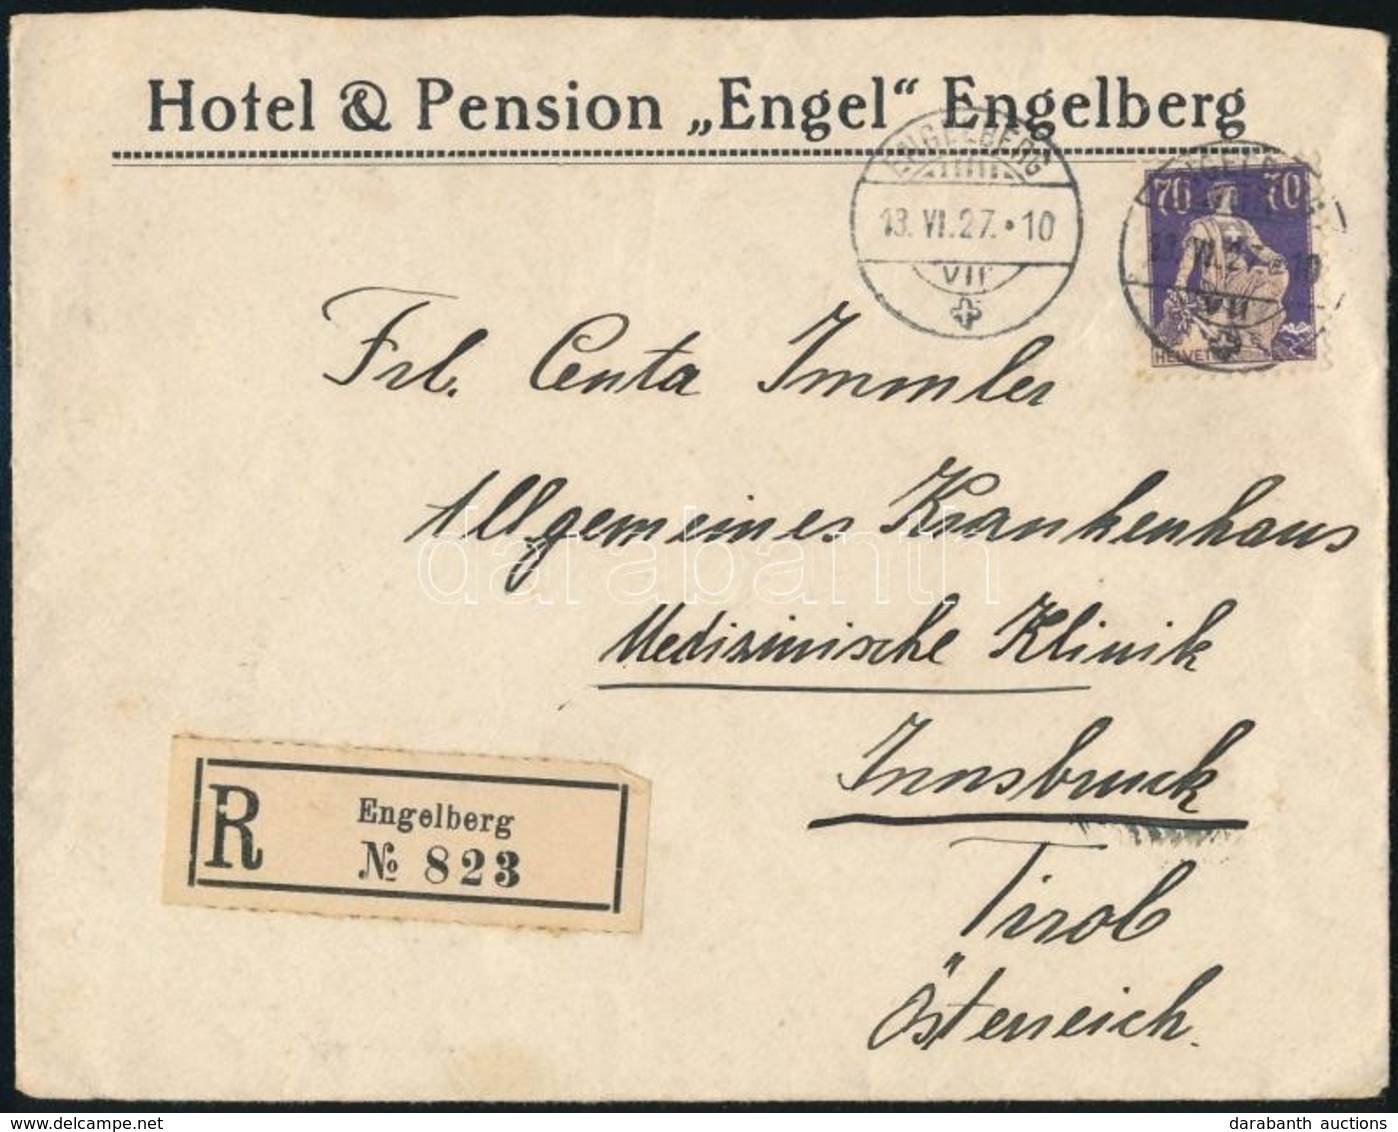 Hotel & Pension „Engel“ Engelberg
ENGELBERG
13. VI. 27. • 10
VII
70 70
HELVET
Frl. Centa Immler
Allgemeines Krankenhaus
Medizinische Klinik
Innsbruck
Tirol
Österreich.
R
Engelberg
№ 823
darabanth
darabanth auctions